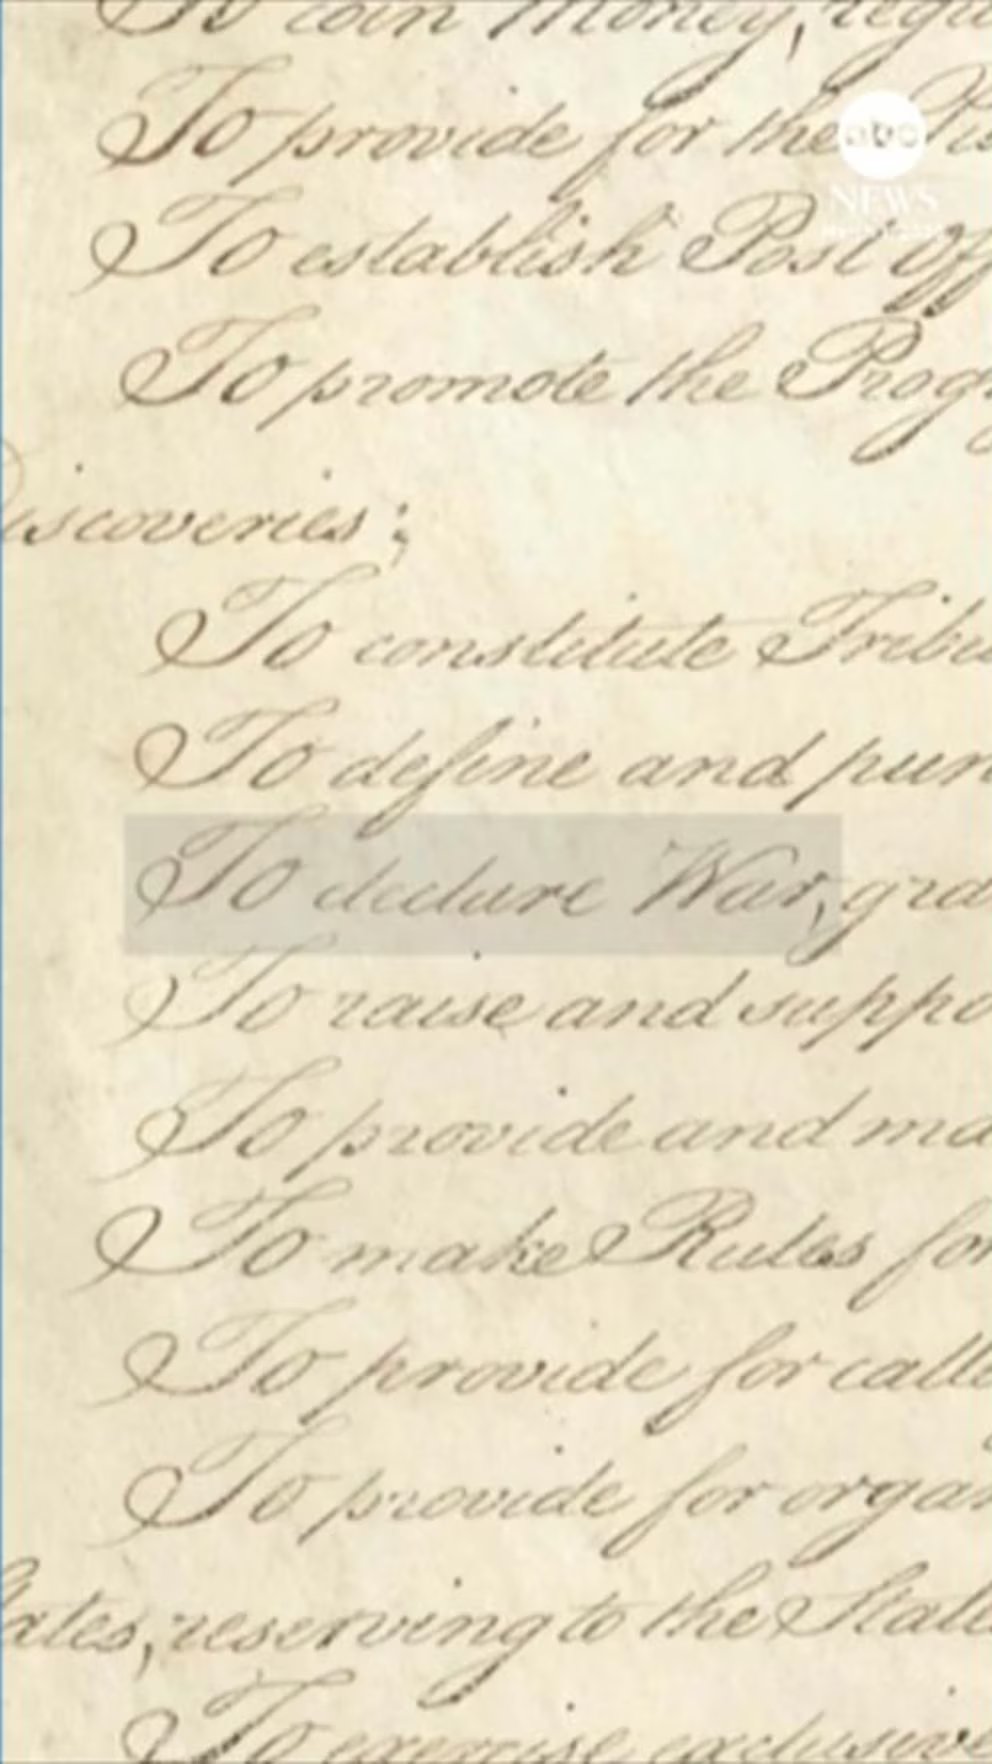 To coin Money, regu
To provide for the Pu
abc
NEWS
To establish Post Off
To promote the Prog
iscoveries;
To constitute Tribu
To define and pun
To declare War, gra
To raise and suppo
To provide and ma
To make Rules for
To provide for calli
To provide for organ
tates, reserving to the State
To exercise exclusive